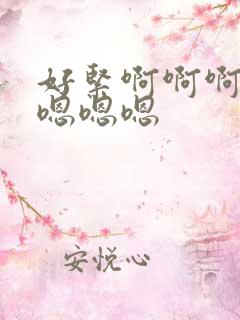 好緊啊啊啊
嗯嗯嗯
安悦心